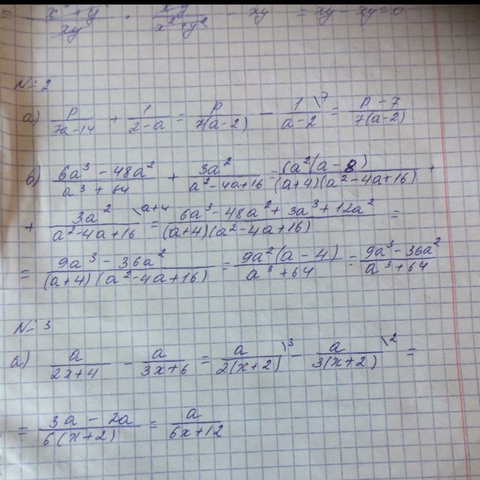 = x²+y²/xy · xy/x²+y² - xy = xy - xy = 0
N=2
а) p/7a-14 + 1/2-a = p/7(a-2) - 1\7/a-2 = p-7/7(a-2)
в) 6a³-48a²/a³+64 + 3a²/a²-4a+16 = 6a²(a-8)/(a+4)(a²-4a+16) +
+ 3a²\a+4/a²-4a+16 = 6a³-48a²+3a³+12a²/(a+4)(a²-4a+16) =
= 9a³-36a²/(a+4)(a²-4a+16) = 9a²(a-4)/a³+64 = 9a³-36a²/a³+64
N=3
а) a/2x+4 - a/3x+6 = a\3/2(x+2) - a\2/3(x+2) =
= 3a-2a/6(x+2) = a/6x+12